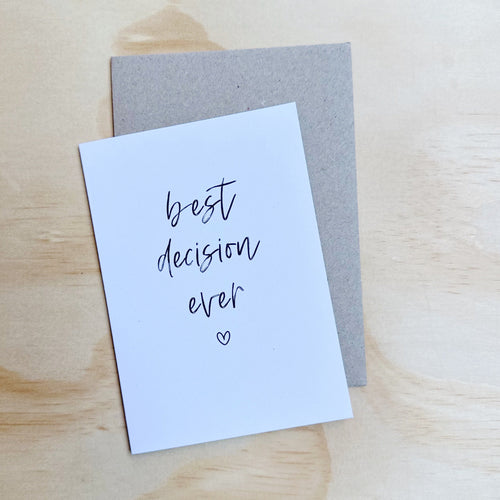 best
decision
ever
♡